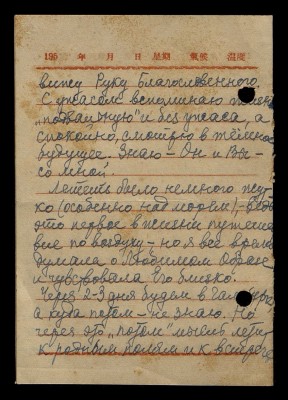 195 年 月 日 星期 氣候 溫度
вижу Руку Благословенного.
С ужасом вспоминаю
"подвижную" и без ужаса, а
спокойно, смотрю в тёмное
будущее. Знаю – Он и Вы –
со мной.
Лететь было немного жут-
ко (особенно над морем), ведь
это первое в жизни путешест-
вие по воздуху – но я всё время
думала о Любимом Образе
и чувствовала Его близко.
Через 2-3 дня будем в Гамбурге
а куда потом – не знаю. Но
через это "потом" мысль лети-
к родным полям и к встрече